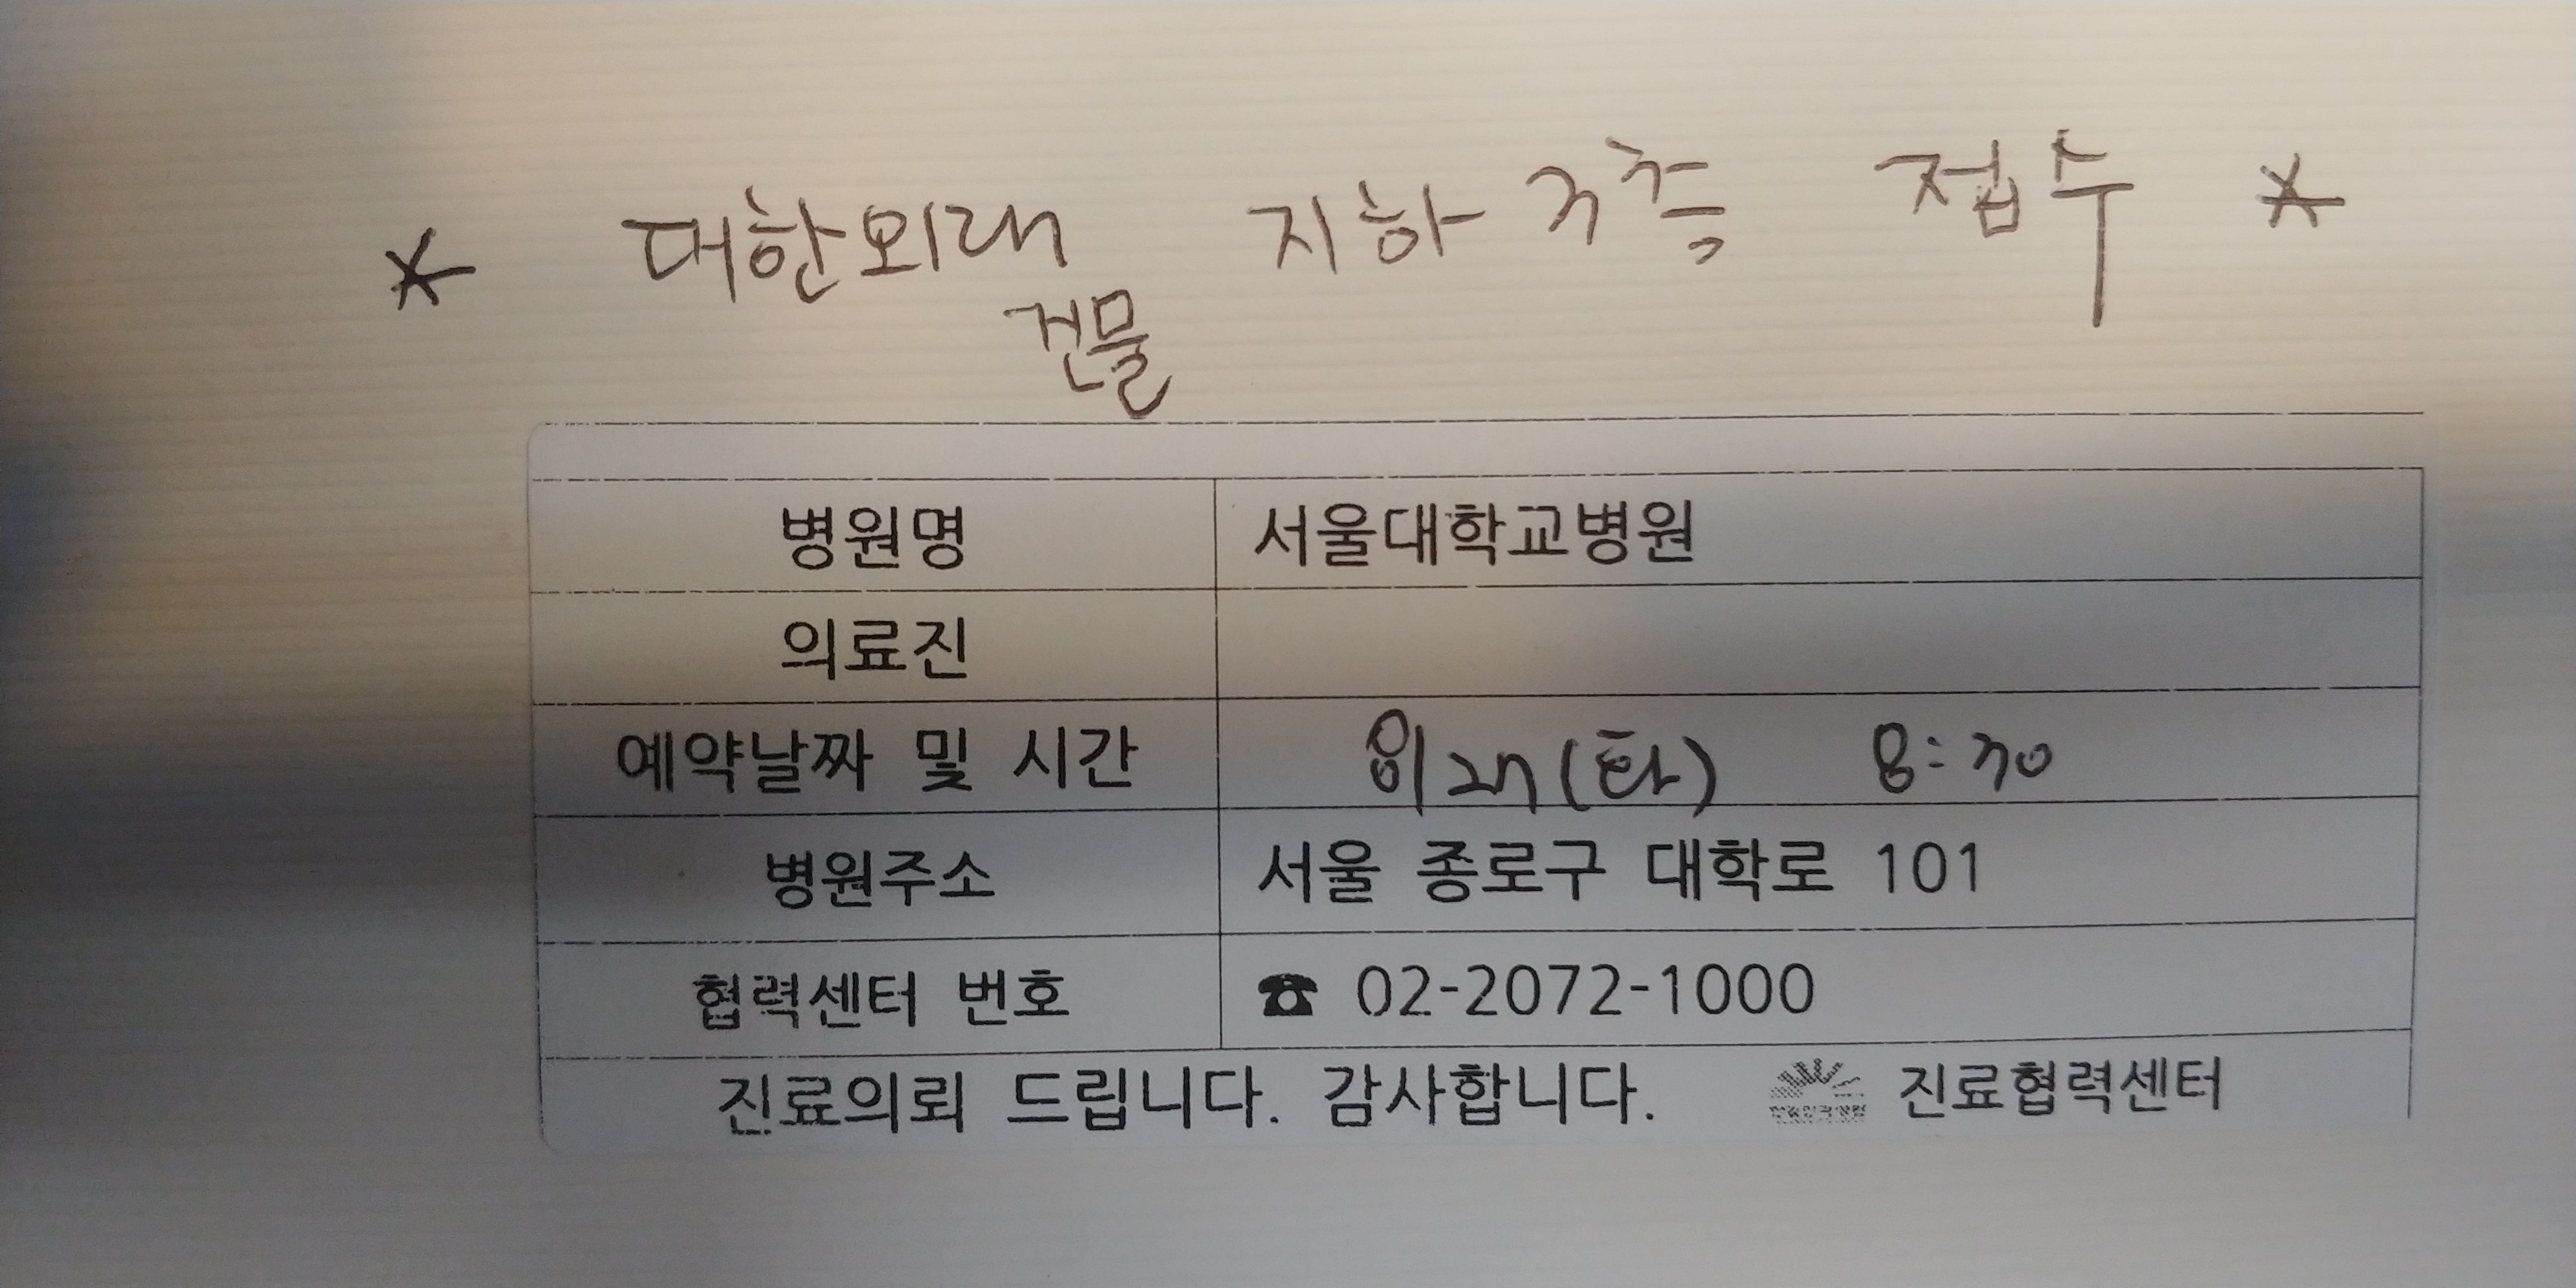 * 대한외래 지하 3층 접수 *
건물
병원명 서울대학교병원
의료진
예약날짜 및 시간 (화) 8:30
병원주소 서울 종로구 대학로 101
협력센터 번호 ☎ 02-2072-1000
진료의뢰 드립니다. 감사합니다. 진료협력센터